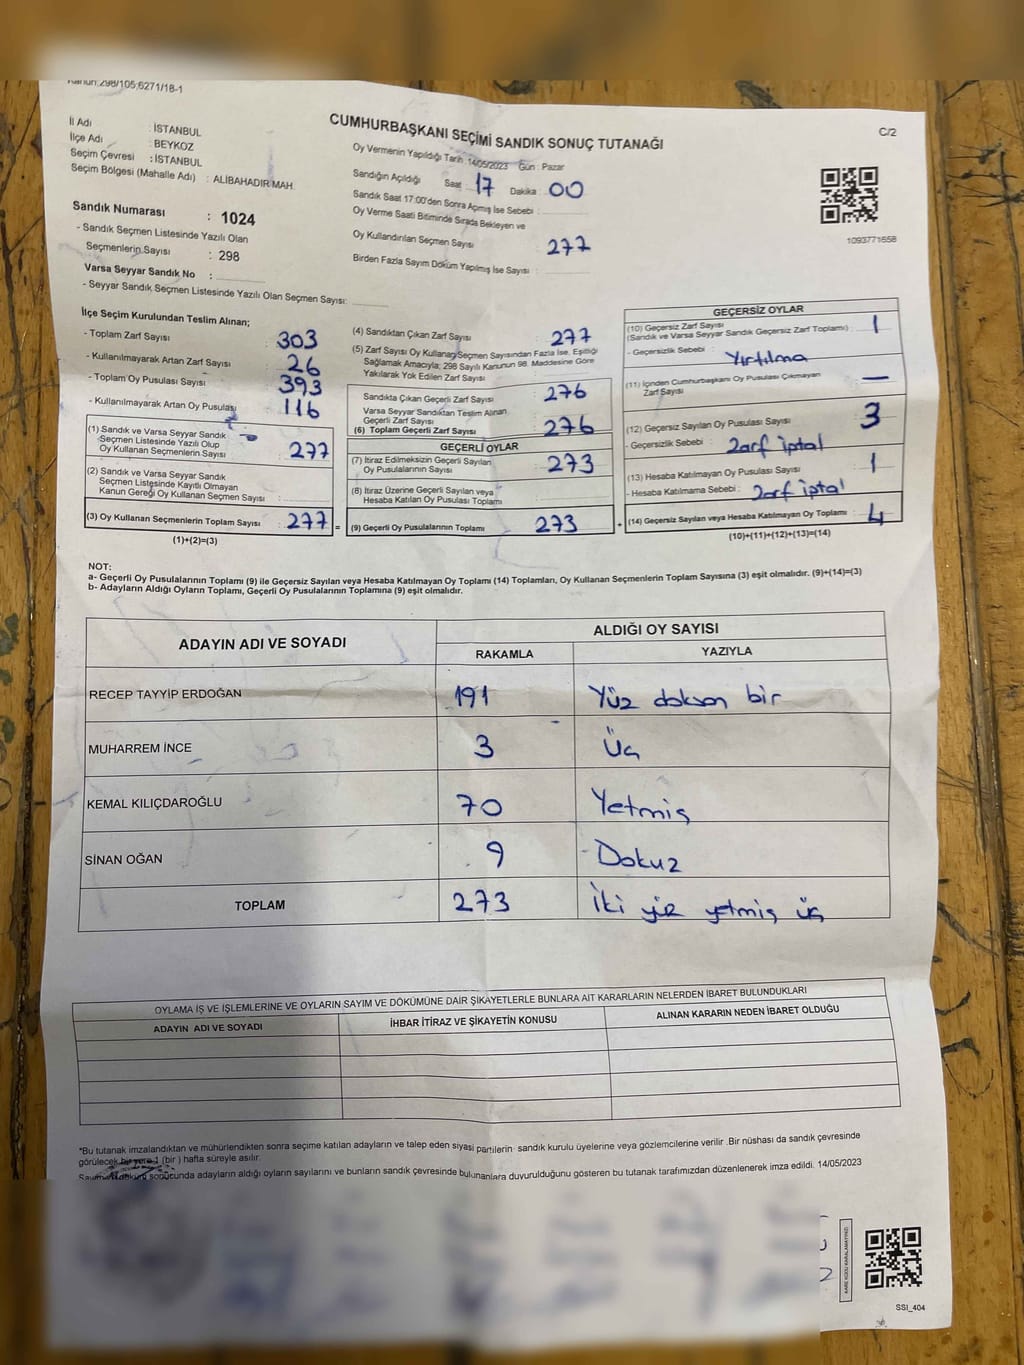 Kanun:298/105;6271/18-1
CUMHURBAŞKANI SEÇİMİ SANDIK SONUÇ TUTANAĞI
C/2
İl Adı : İSTANBUL
İlçe Adı : BEYKOZ
Seçim Çevresi : İSTANBUL
Seçim Bölgesi (Mahalle Adı) : ALİBAHADIR MAH.
Sandık Numarası : 1024
- Sandık Seçmen Listesinde Yazılı Olan
Seçmenlerin Sayısı : 298
Varsa Seyyar Sandık No :
- Seyyar Sandık Seçmen Listesinde Yazılı Olan Seçmen Sayısı:
Oy Vermenin Yapıldığı Tarih 14/05/2023 Gün : Pazar
Sandığın Açıldığı Saat 17 Dakika : 00
Sandık Saat 17:00'den Sonra Açmış İse Sebebi :
Oy Verme Saati Bitiminde Sırada Bekleyen ve
Oy Kullandırılan Seçmen Sayısı 277
Birden Fazla Sayım Döküm Yapılmış İse Sayısı :
1093771658
İlçe Seçim Kurulundan Teslim Alınan;
- Toplam Zarf Sayısı : 303
- Kullanılmayarak Artan Zarf Sayısı : 26
- Toplam Oy Pusulası Sayısı : 393
- Kullanılmayarak Artan Oy Pusulası : 116
(1) Sandık ve Varsa Seyyar Sandık
Seçmen Listesinde Yazılı Olup
Oy Kullanan Seçmenlerin Sayısı : 277
(2) Sandık ve Varsa Seyyar Sandık
Seçmen Listesinde Kayıtlı Olmayan
Kanun Gereği Oy Kullanan Seçmen Sayısı :
(3) Oy Kullanan Seçmenlerin Toplam Sayısı : 277 =
(1)+(2)=(3)
(4) Sandıktan Çıkan Zarf Sayısı : 277
(5) Zarf Sayısı Oy Kullanan Seçmen Sayısından Fazla İse, Eşitliği
Sağlamak Amacıyla; 298 Sayılı Kanunun 98. Maddesine Göre
Yakılarak Yok Edilen Zarf Sayısı :
Sandıkta Çıkan Geçerli Zarf Sayısı : 276
Varsa Seyyar Sandıktan Teslim Alınan
Geçerli Zarf Sayısı :
(6) Toplam Geçerli Zarf Sayısı 276
GEÇERLİ OYLAR
(7) İtiraz Edilmeksizin Geçerli Sayılan
Oy Pusulalarının Sayısı : 273
(8) İtiraz Üzerine Geçerli Sayılan veya
Hesaba Katılan Oy Pusulası Toplamı :
(9) Geçerli Oy Pusulalarının Toplamı : 273 +
GEÇERSİZ OYLAR
(10) Geçersiz Zarf Sayısı
(Sandık ve Varsa Seyyar Sandık Geçersiz Zarf Toplamı) : 1
- Geçersizlik Sebebi : Yırtılma
(11) İçinden Cumhurbaşkanı Oy Pusulası Çıkmayan
Zarf Sayısı : —
(12) Geçersiz Sayılan Oy Pusulası Sayısı : 3
- Geçersizlik Sebebi : Zarf iptal
(13) Hesaba Katılmayan Oy Pusulası Sayısı : 1
- Hesaba Katılmama Sebebi : Zarf iptal
(14) Geçersiz Sayılan veya Hesaba Katılmayan Oy Toplamı : 4
(10)+(11)+(12)+(13)=(14)
NOT:
a- Geçerli Oy Pusulalarının Toplamı (9) ile Geçersiz Sayılan veya Hesaba Katılmayan Oy Toplamı (14) Toplamları, Oy Kullanan Seçmenlerin Toplam Sayısına (3) eşit olmalıdır. (9)+(14)=(3)
b- Adayların Aldığı Oyların Toplamı, Geçerli Oy Pusulalarının Toplamına (9) eşit olmalıdır.
ADAYIN ADI VE SOYADI ALDIĞI OY SAYISI
RAKAMLA YAZIYLA
RECEP TAYYİP ERDOĞAN 191 Yüz doksan bir
MUHARREM İNCE 3 Üç
KEMAL KILIÇDAROĞLU 70 Yetmiş
SİNAN OĞAN 9 Dokuz
TOPLAM 273 İki yüz yetmiş üç
OYLAMA İŞ VE İŞLEMLERİNE VE OYLARIN SAYIM VE DÖKÜMÜNE DAİR ŞİKAYETLERLE BUNLARA AİT KARARLARIN NELERDEN İBARET BULUNDUKLARI
ADAYIN ADI VE SOYADI İHBAR İTİRAZ VE ŞİKAYETİN KONUSU ALINAN KARARIN NEDEN İBARET OLDUĞU
*Bu tutanak imzalandıktan ve mühürlendikten sonra seçime katılan adayların ve talep eden siyasi partilerin sandık kurulu üyelerine veya gözlemcilerine verilir .Bir nüshası da sandık çevresinde
görülecek bir yere 1 (bir ) hafta süreyle asılır.
sonucunda adayların aldığı oyların sayılarını ve bunların sandık çevresinde bulunanlara duyurulduğunu gösteren bu tutanak tarafımızdan düzenlenerek imza edildi. 14/05/2023
SSI_404